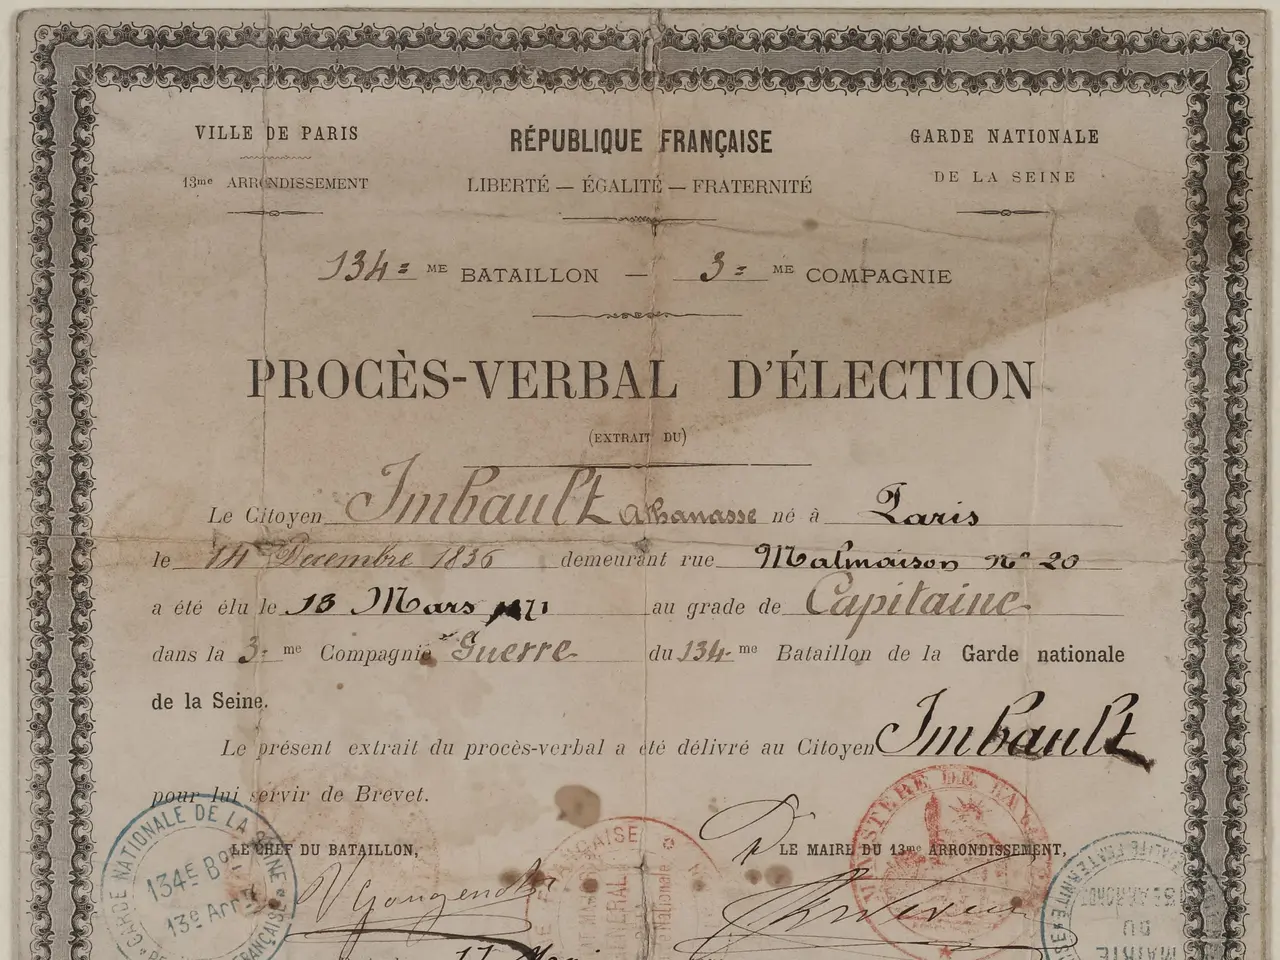 VILLE DE PARIS
RÉPUBLIQUE FRANÇAISE
GARDE NATIONALE
13me ARRONDISSEMENT
LIBERTÉ — ÉGALITÉ — FRATERNITÉ
DE LA SEINE
134= ME BATAILLON — 3= ME COMPAGNIE
PROCÈS-VERBAL D'ÉLECTION
(EXTRAIT DU)
Le Citoyen Imbault Athanasse né à Paris
le 14 Decembre 1836 demeurant rue Malmaison No 20
a été élu le 13 Mars 1871 au grade de Capitaine
dans la 3= me Compagnie Guerre du 134= me Bataillon de la Garde nationale
de la Seine.
Le présent extrait du procès-verbal a été délivré au Citoyen Imbault
pour lui servir de Brevet.
LE CHEF DU BATAILLON,
LE MAIRE DU 13me ARRONDISSEMENT,
GARDE NATIONALE DE LA SEINE
134E Bon
13e Arrt
FRANÇAISE
MINISTÈRE DE LA
MAIRIE
DU
13E ARRONDT
17 Mai